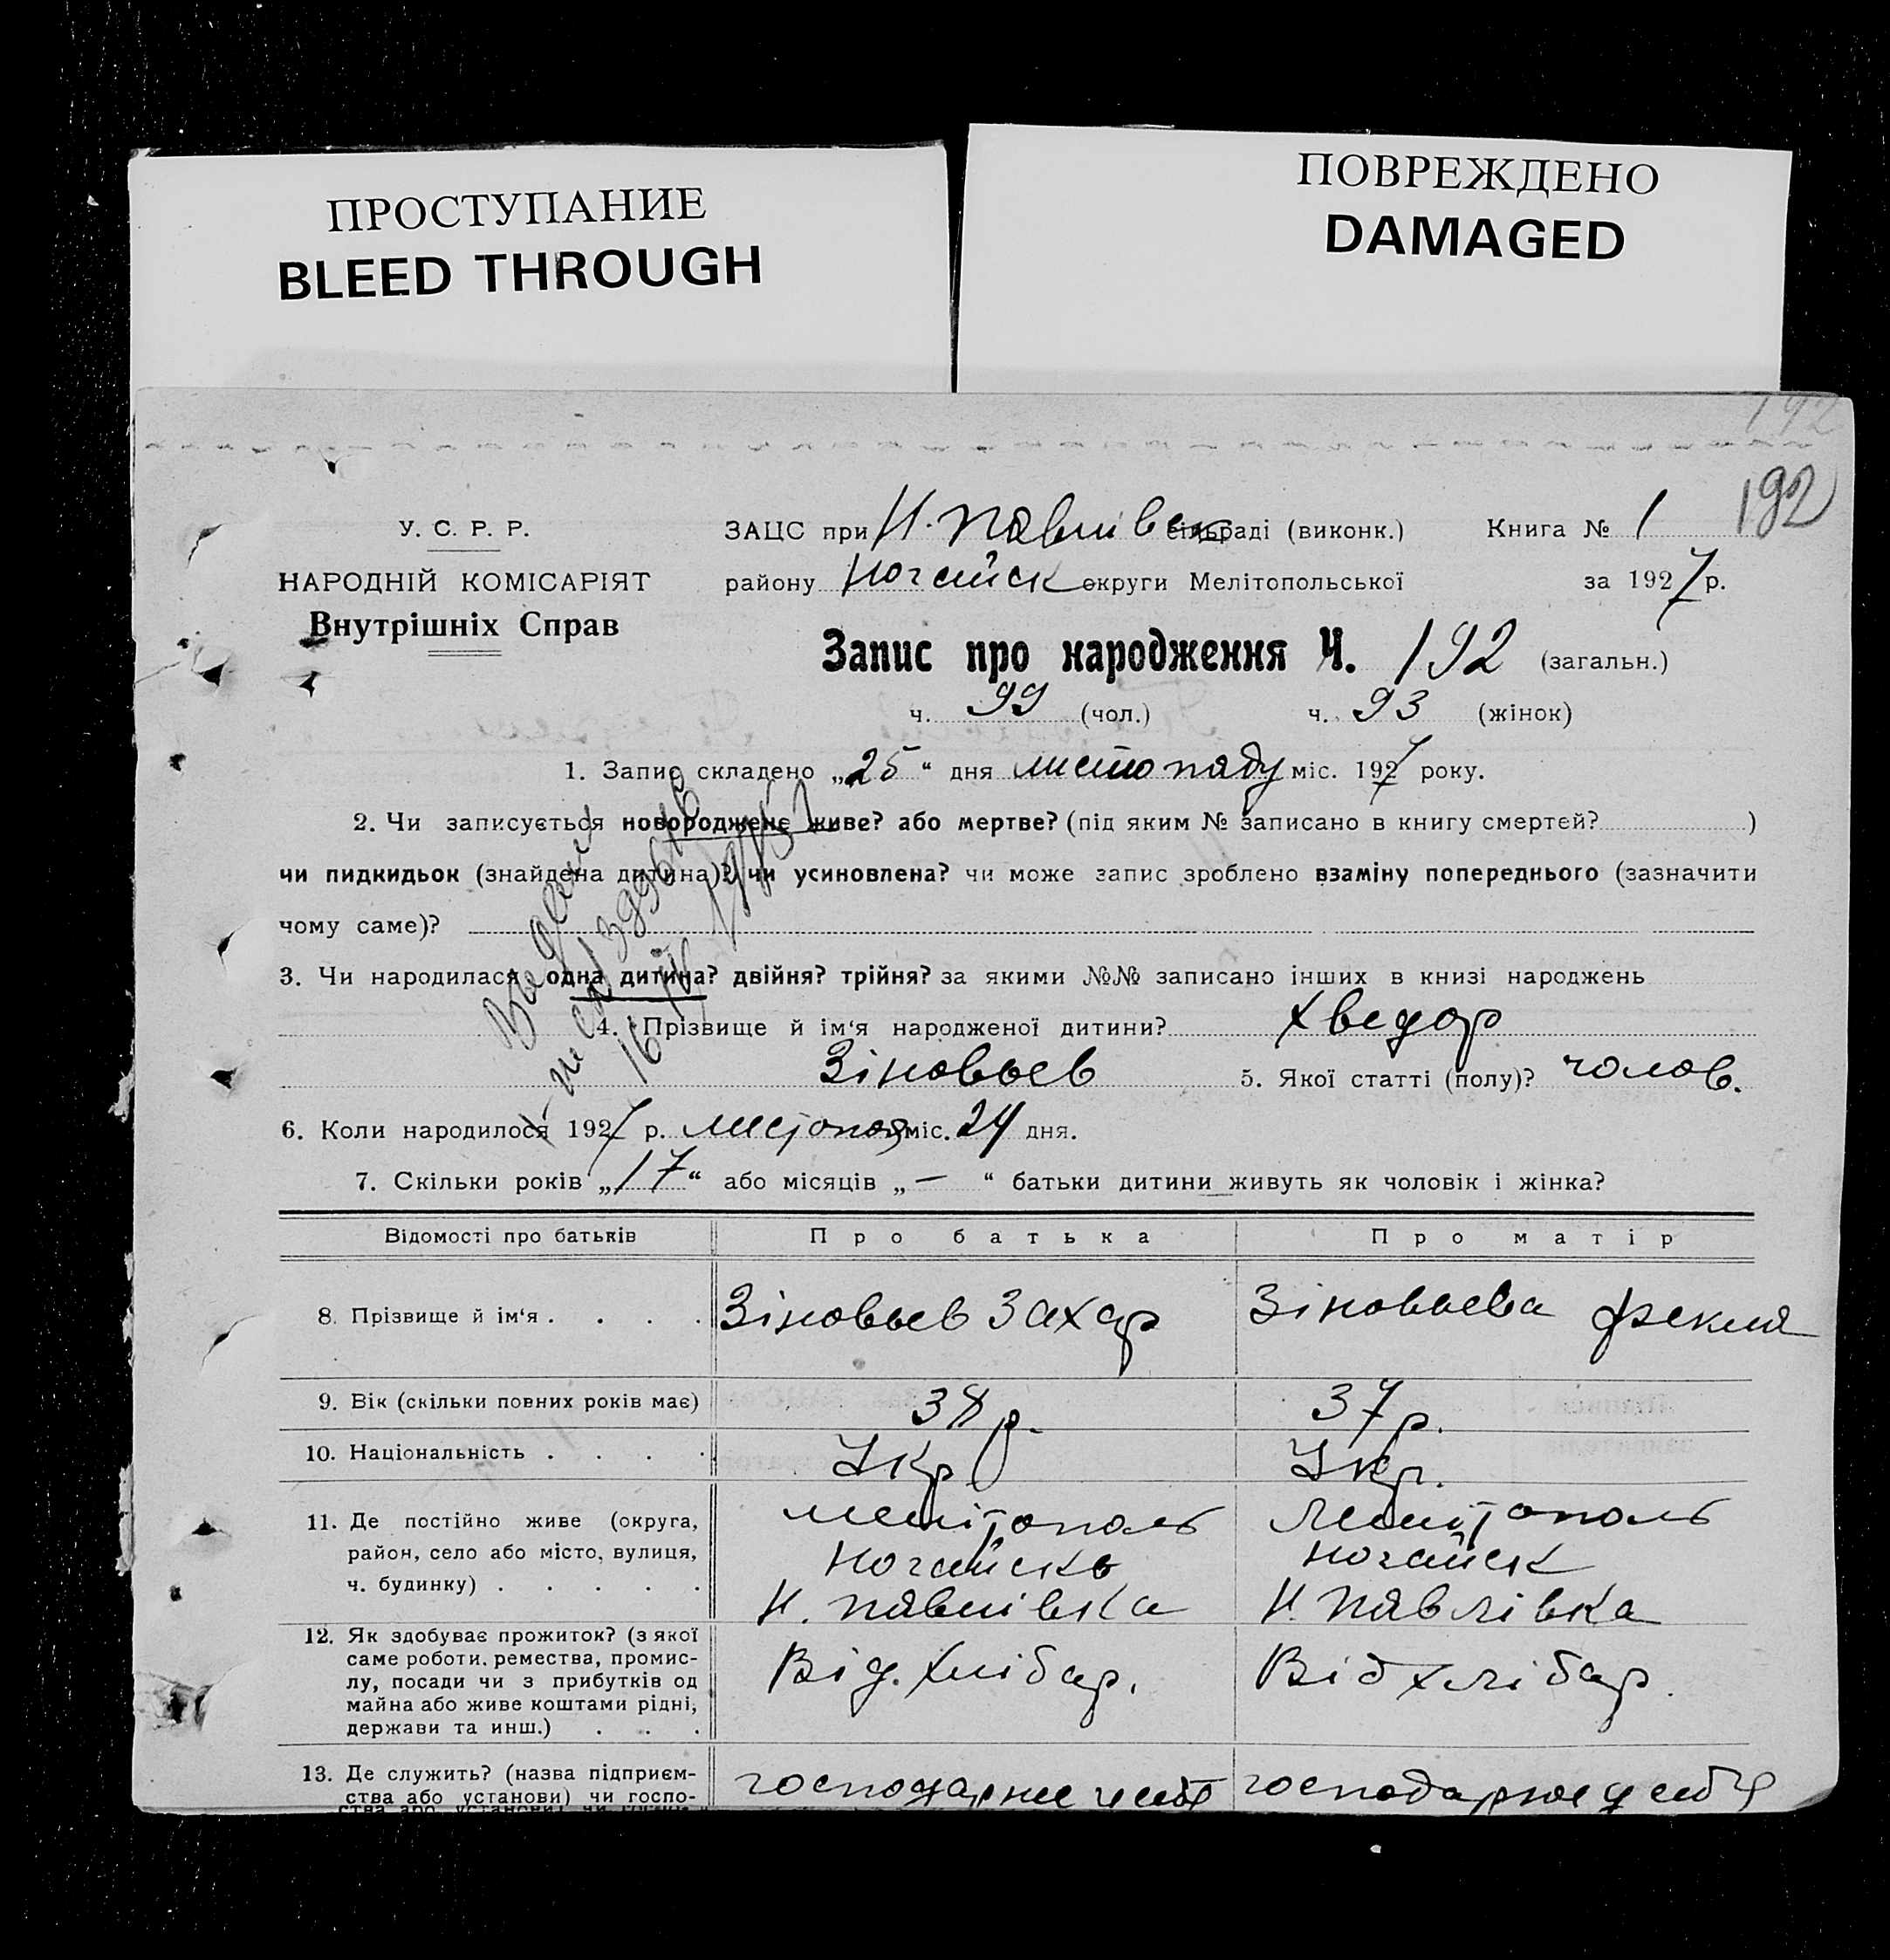 ПРОСТУПАНИЕ
BLEED THROUGH
ПОВРЕЖДЕНО
DAMAGED
192
192
У. С. Р. Р.
НАРОДНІЙ КОМІСАРІЯТ
Внутрішніх Справ
ЗАЦС при Н. Павлівск сільраді (виконк.) Книга № 1
району Ногайск округи Мелітопольської за 1927 р.
Запис про народження Ч. 192 (загальн.)
ч. 99 (чол.) ч. 93 (жінок)
1. Запис складено „25“ дня листопаду міс. 1927 року.
2. Чи записується новороджене живе? або мертве? (під яким № записано в книгу смертей? )
чи пидкидьок (знайдена дитина)? чи усиновлена? чи може запис зроблено взаміну попереднього (зазначити
чому саме)?
3. Чи народилася одна дитина? двійня? трійня? за якими №№ записано інших в книзі народжень
4. Прізвище й ім‘я народженої дитини? Хведор
Зіновьев 5. Якої статті (полу)? чолов.
6. Коли народилося 1927 р. листопад міс. 24 дня.
7. Скільки років „17“ або місяців „—“ батьки дитини живуть як чоловік і жінка?
Відомості про батьків Про батька Про матір
8. Прізвище й ім‘я . . . . Зіновьев Захар Зіновьева Фекля
9. Вік (скільки повних років має) 38 р. 37 р.
10. Національність . . . . Укр Укр.
11. Де постійно живе (округа,
район, село або місто, вулиця,
ч. будинку) . . . . .
Мелітополь
Ногайськ
Н. Павлівка
Мелітополь
Ногайск
Н. Павлівка
12. Як здобуває прожиток? (з якої
саме роботи, ремества, промис-
лу, посади чи з прибутків од
майна або живе коштами рідні,
держави та инш.) . . .
Від. хлібар.
Від хлібар.
13. Де служить? (назва підприєм-
ства або установи) чи госпо-
господарює у себя господарює у себя